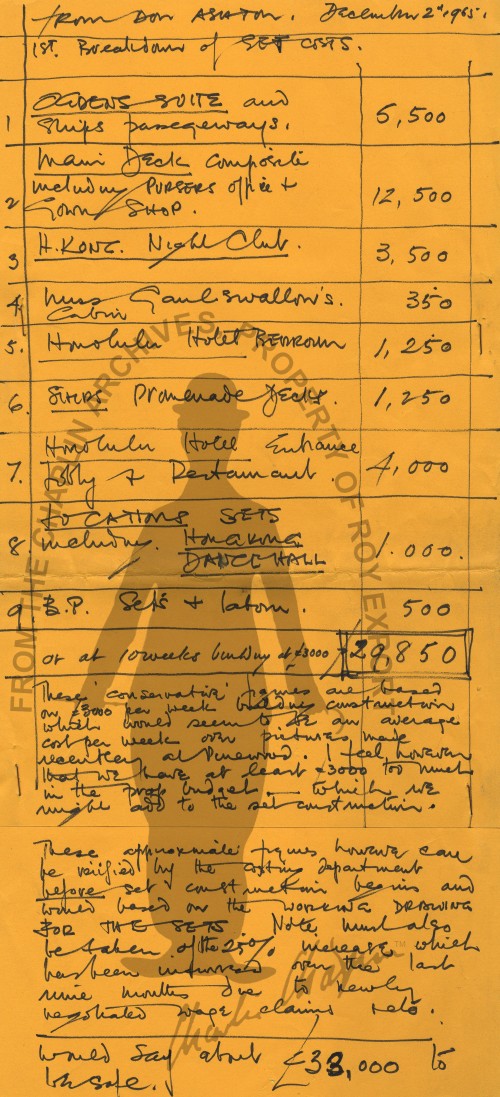 from Don Ashton. December 2d. 1965.
1st. Breakdown of SET COSTS.
1 OGDENS SUITE and
Ships passageways. 5,500
2 Main Deck composite
including PURSERS office +
Gown SHOP. 12,500
3 H. KONG. Night Club. 3,500
4 Miss Gaulswallow's.
Cabin 350
5. Honolulu Hotel BEDROOM 1,250
6. SHIPS Promenade Decks. 1,250
7. Honolulu Hotel Entrance
lobby + Restaurant. 4,000
8. LOCATIONS SETS
including. HONG KONG
DANCE HALL 1.000.
9. B.P. Sets + labour. 500
or at 10 weeks building at £3000 29850
These 'conservative' figures are based
on £3000 per week building construction
which would seem to be an average
cost per week over pictures made
recently at Pinewood. I feel however
that we have at least £3000 too much
in the props budget. — which we
might add to the set construction.
These approximate figures however can
be verified by the costing department
before set construction begins and
would based on the WORKING DRAWING
FOR THE SETS Note must also
be taken of the 25% increase which
has been incurred over the last
nine months due to newly
negotiated wage claims
would say about £33,000 to
be safe.
FROM THE CHAPLIN ARCHIVES, PROPERTY OF ROY EXPORT
Charlie Chaplin ™